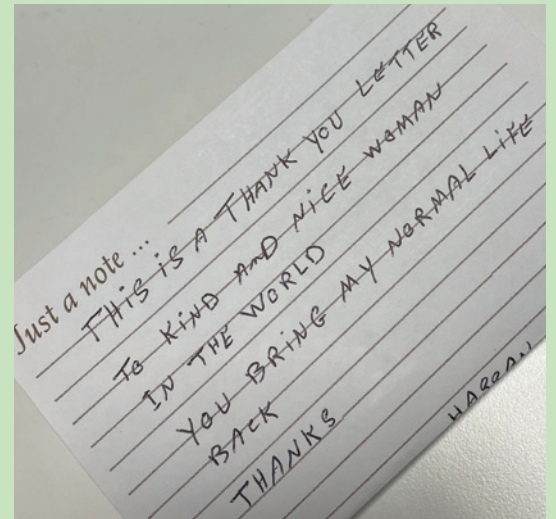 Just a note ...
THIS IS A THANK YOU LETTER
TO KIND AND NICE WOMAN
IN THE WORLD
YOU BRING MY NORMAL LIFE
BACK
THANKS